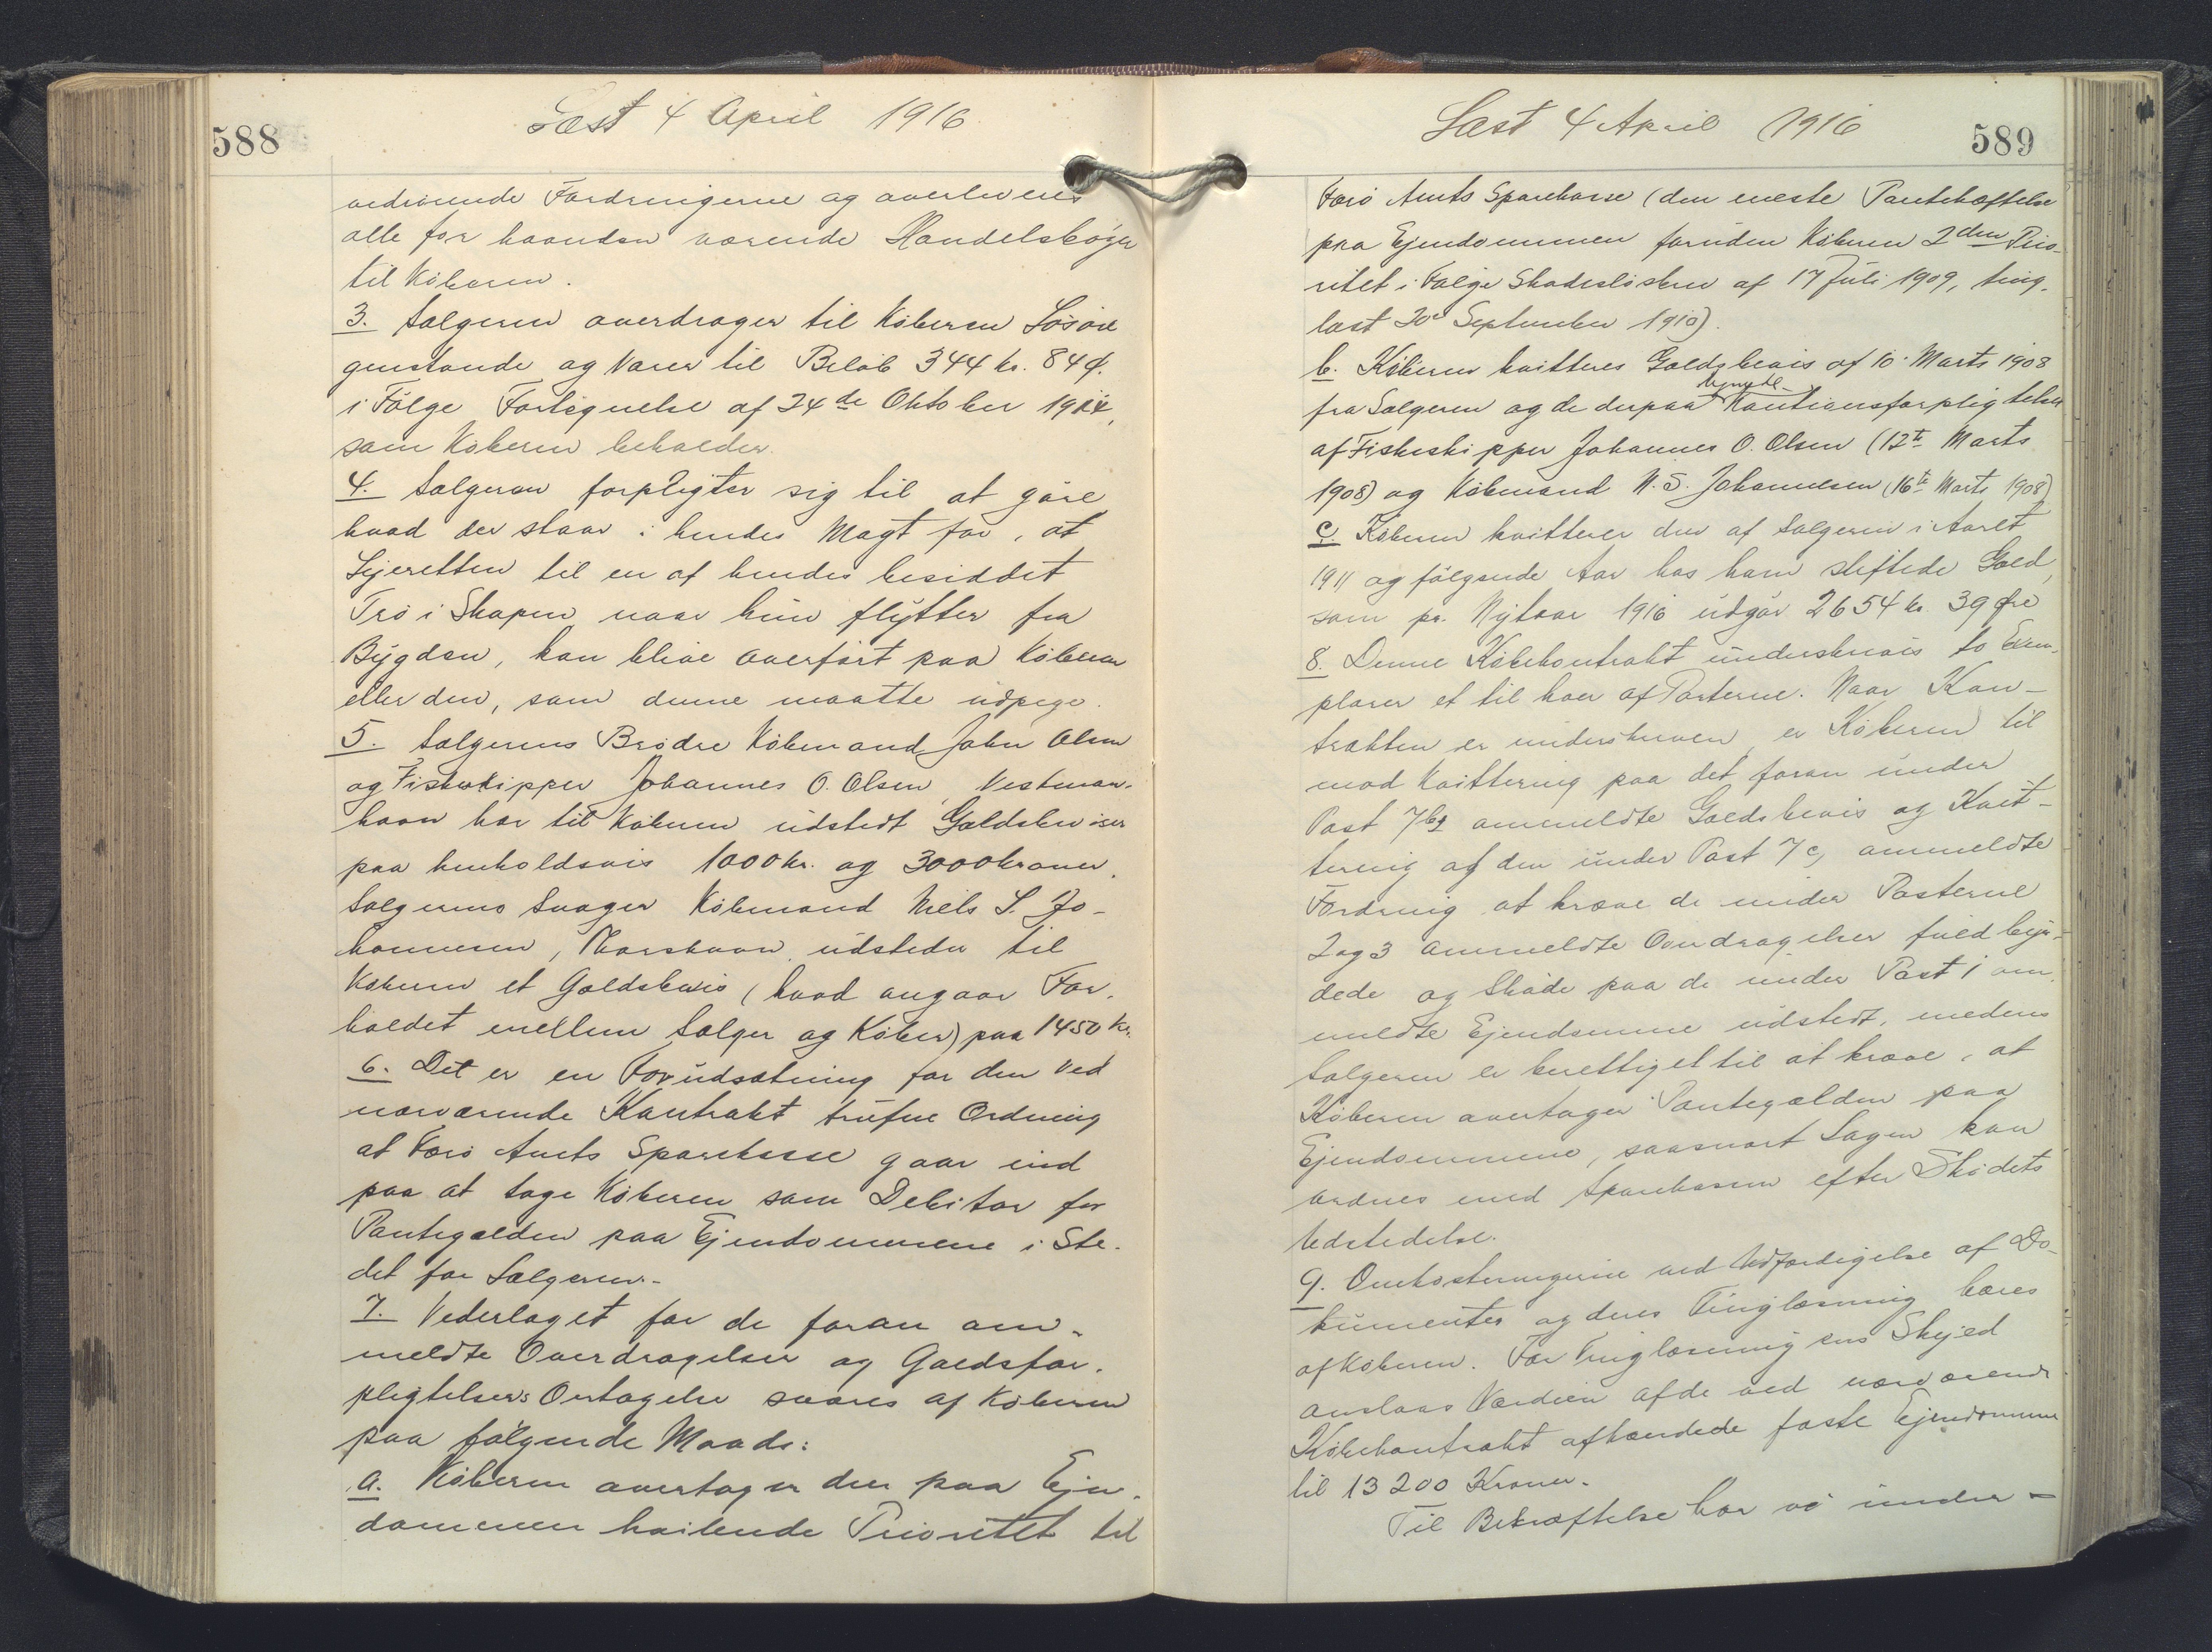 588
Læst 4 April 1916
vedrørende Fordringerne og overleveres
alle for haanden værende Handelsbøger
til Køberen.
3. Sælgeren overdrager til Køberen Løsøre
genstande og Varer til Beløb 344 kr. 84 ø.
i Følge Fortegnelse af 24de Oktober 1914,
som Køberen beholder.
4. Sælgeren forpligter sig til at gøre
hvad der staar i hendes Magt for, at
Lejeretten til en af hendes besiddet
Trø i Skapen naar hun flytter fra
Bygden, kan blive overført paa Køberen
eller den, som denne maatte udpege.
5. Sælgerens Brødre Købmand John Olsen
og Fiskeskipper Johannes O. Olsen, Vestman-
havn har til Køberen udstedt Gældsbeviser
paa henholdsvis 1000 kr. og 3000 kroner.
Sælgerens Svoger Købmand Niels S. Jo-
hannesen, Thorshavn udsteder til
Køberen et Gældsbevis (hvad angaar For-
holdet mellem Sælger og Køber) paa 1450 kr.
6. Det er en Forudsætning for den ved
nærværende Kontrakt trufne Ordning
at Færø Amts Sparekasse gaar ind
paa at tage Køberen som Debitor for
Pantegælden paa Ejendommene i Ste-
det for Sælgeren.-
7. Vederlaget for de foran om-
meldte Overdragelser og Gældsfor-
pligtelsers Overtagelse svares af Køberen
paa følgende Maade:
a. Køberen overtager den paa Ejen-
dommen hvilende Prioritet til
Læst 4 April 1916
589
Færø Amts Sparekasse (den eneste Pantehæftelse
paa Ejendommen foruden Køberen 2den Prio-
ritet i Følge Skadesløsbrev af 17 Juli 1909, ting-
læst 20' September 1910).
b. Køberen kvitteres Gældsbevis af 10' Marts 1908
fra Sælgeren og de derpaa tegnede Kautionsforpligtelser
af Fiskeskipper Johannes O. Olsen (12te Marts
1908) og Købmand N. S. Johannesen (16te Marts 1908)
c. Køberen kvitterer den af Sælgeren i Aaret
1911 og følgende Aar hos ham stiftede Gæld,
som pr. Nytaar 1916 udgør 2654 kr. 39 Øre
8. Denne Købekontrakt underskrives to Exem-
plarer et til hver af Parterne. Naar Kon-
trakten er underskreven er Køberen til
mod Kvittering paa det foran under
Post 7 b, ommeldte Gældsbevis og Kvit-
tering af den under Post 7 c, ommeldte
Fordring at kræve de under Posterne
2 og 3 ommeldte Overdragelser fuldbyr-
dede og Skøde paa de under Post 1 om
meldte Ejendomme udstedt, medens
Sælgeren er berettiget til at kræve, at
Køberen overtager Pantegælden paa
Ejendommene, saasnart Sagen kan
ordnes med Sparekassen efter Skødets
Udstedelse.
9. Omkostningerne ved Udfærdigelse af Do-
kumenter og deres Tinglæsning bæres
af Køberen. For Tinglæsningens Skyld
anslaas Værdien af de ved nærværende
Købekontrakt afhændede faste Ejendomme
til 13200 Kroner.
Til Bekræftelse har vi under-